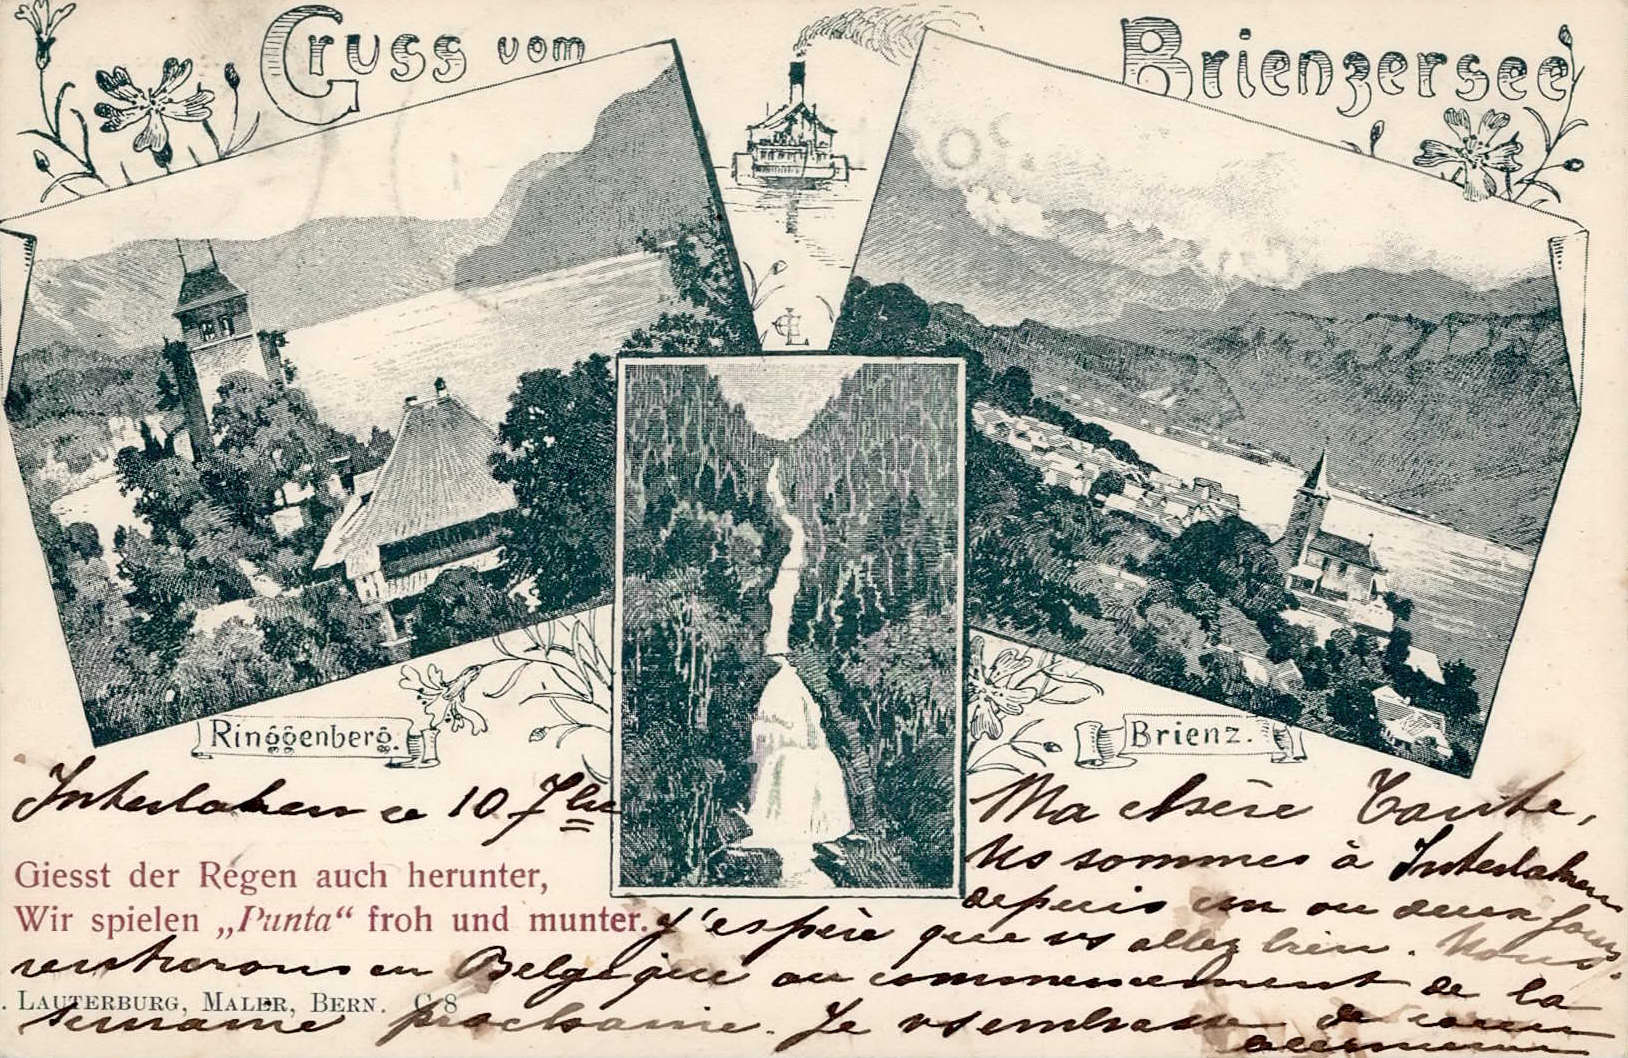 Gruss vom Brienzersee
CL
Ringgenberg.
Brienz.
Interlaken ce 10 7bre
Giesst der Regen auch herunter,
Wir spielen „Punta“ froh und munter.
Ma chère Tante,
Ns sommes à Interlaken
depuis un ou deux jours.
J'espère que vs allez bien. Nous
rentrerons en Belgique au commencement de la
semaine prochaine. Je vs embrasse de coeur
. LAUTERBURG, MALER, BERN. C 8